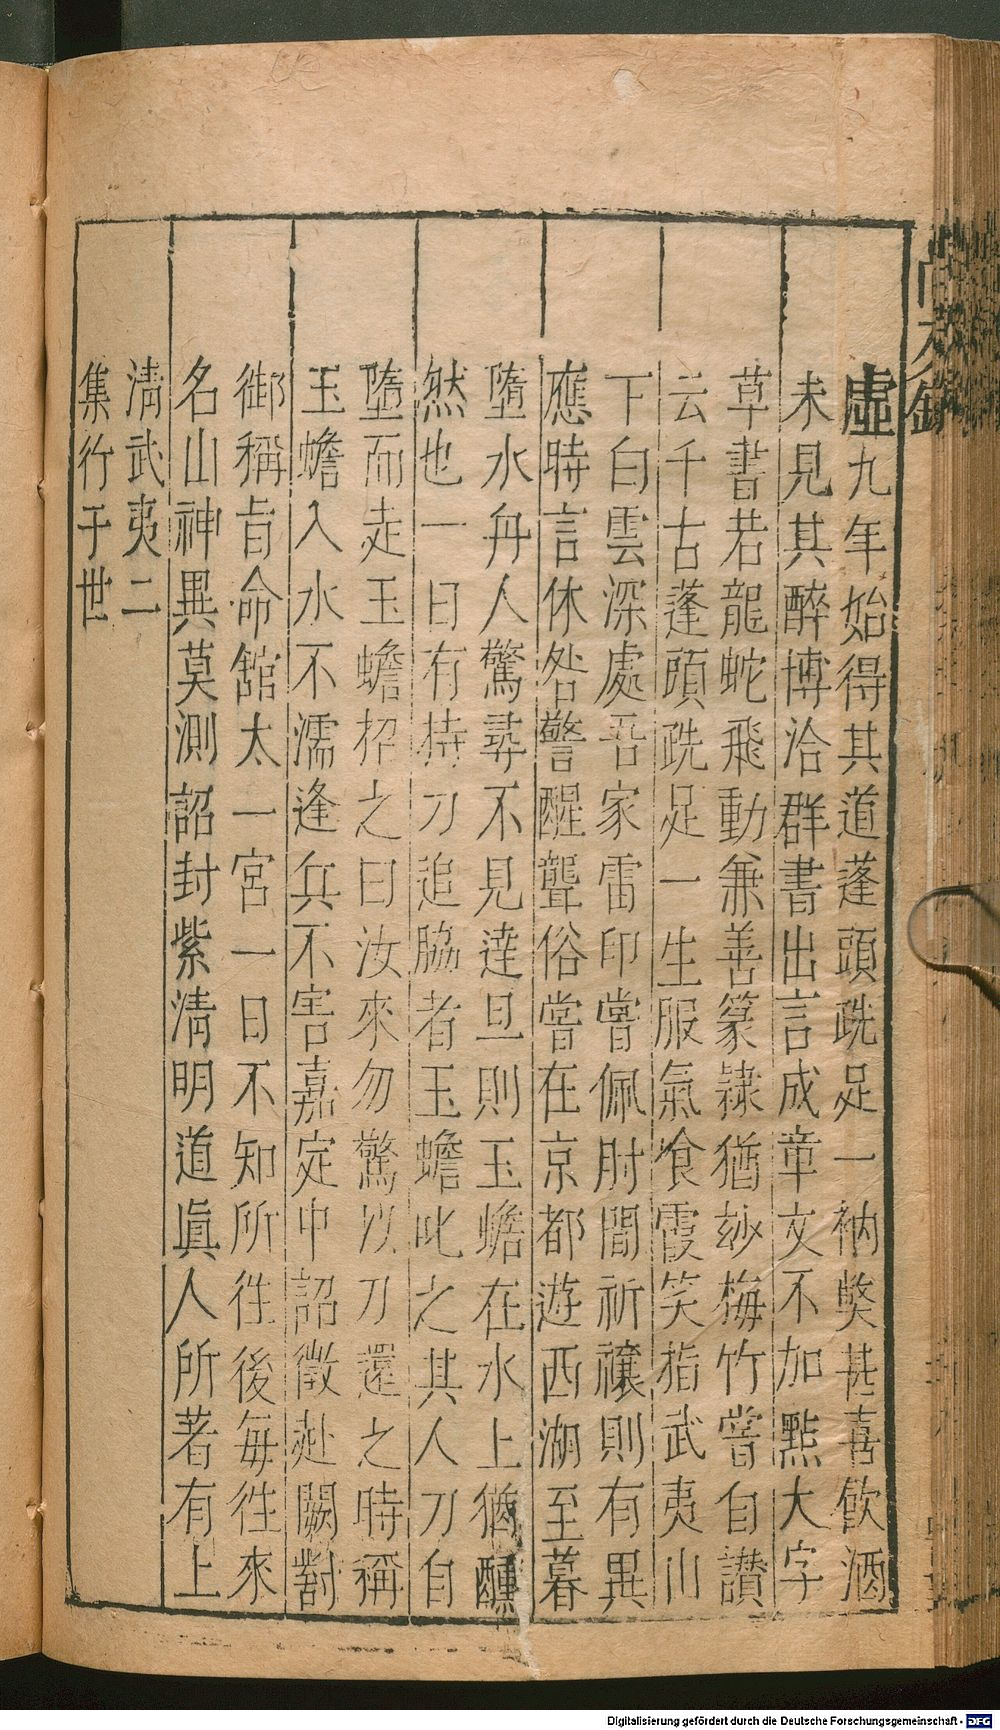 虛九年始得其道蓬頭跣足一衲獘甚喜飮酒
未見其醉博洽群書出言成章文不加㸃大字
草書若龍蛇飛動兼善篆隷猶玅梅竹嘗自讃
云千古蓬頭跣足一生服氣飡霞笑指武夷山
下白雲深處吾家雷印嘗佩肘間祈禳則有異
應時言休咎警醒聾俗嘗在京都遊西湖至暮
墮水舟人驚尋不見達旦則玉蟾在水上猶醺
然也一日有持刀追脇者玉蟾叱之其人刀自
墮而走玉蟾招之曰汝來勿驚以刀還之時稱
玉蟾入水不濡逢兵不害嘉定中詔徵赴闕對
御稱旨命舘太一宮一日不知所徃後每徃來
名山神異莫測詔封紫淸明道眞人所著有上
淸武夷二
集行于世
Digitalisierung gefördert durch die Deutsche Forschungsgemeinschaft - DFG